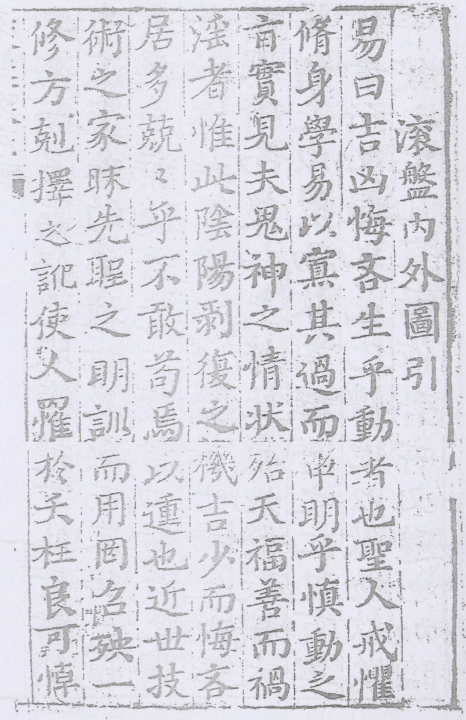 滚盤內外圖引
易曰吉凶悔吝生乎動者也聖人戒懼
脩身學易以寡其過而申明乎慎動之
言實見夫鬼神之情狀殆天福善而禍
滛者惟此陰陽剥復之機吉少而悔吝
居多兢〻乎不敢苟焉以違也近世技
術之家昧先聖之明訓而用罔名殃一
修方剋擇之訛使人罹於夭枉良可悼